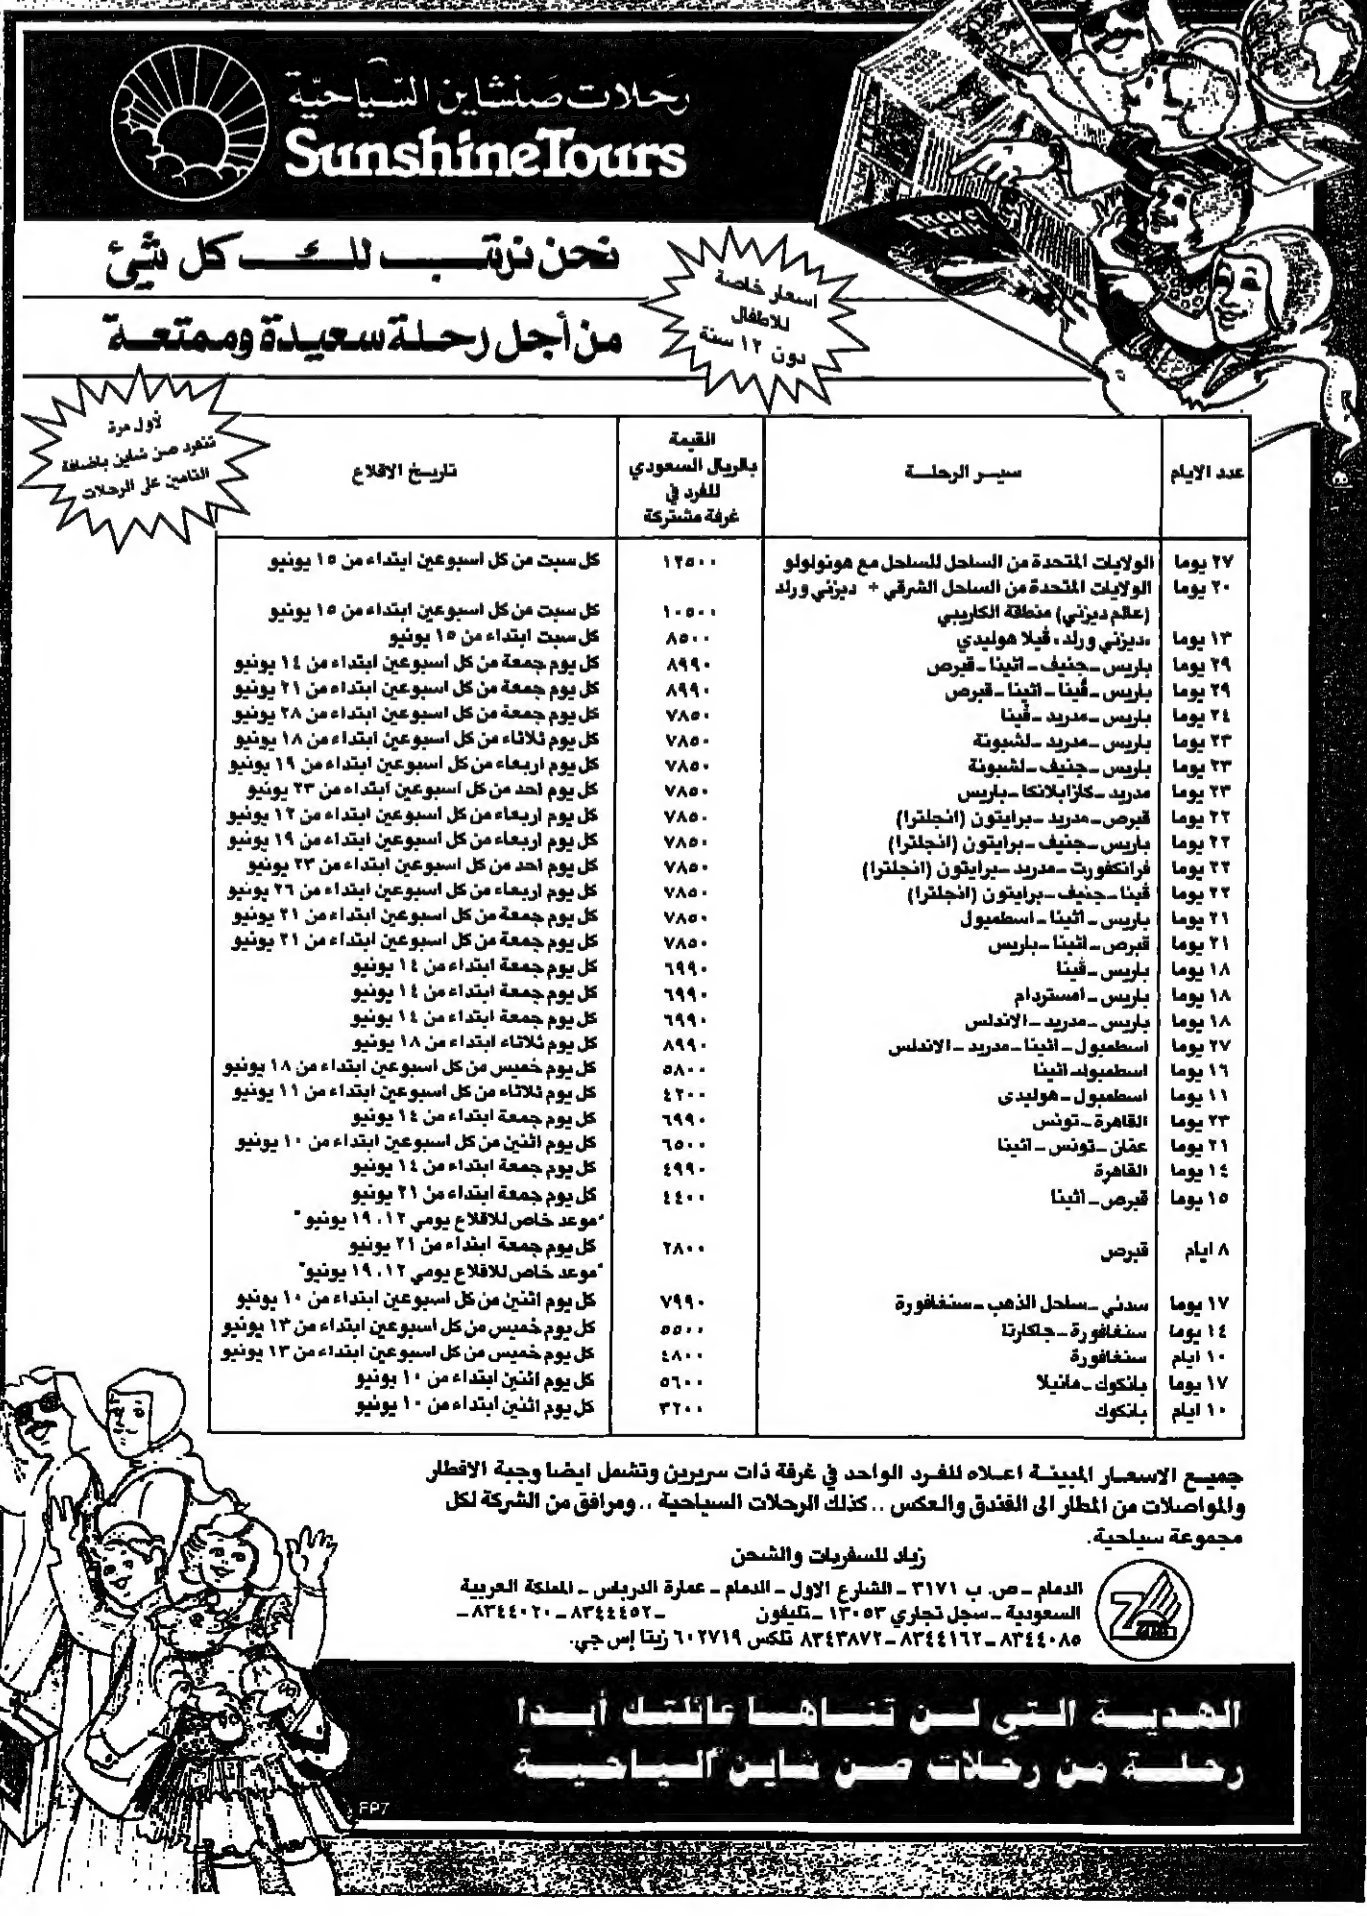 رحلات صنشاين السّياحيّة
SunshineTours
Travel Talk
نحن نرتب لك كل شيئ
من أجل رحلة سعيدة وممتعة
اسعار خاصة
للاطفال
دون ١٢ سنة
لأول مرة
تنفرد صن شاين باضافة
التامين على الرحلات
عدد الايام | سير الرحلة | القيمة بالريال السعودي للفرد في غرفة مشتركة | تاريخ الاقلاع
٢٧ يوما | الولايات المتحدة من الساحل للساحل مع هونولولو | ١٢٥٠٠ | كل سبت من كل اسبوعين ابتداء من ١٥ يونيو
٢٠ يوما | الولايات المتحدة من الساحل الشرقي + ديزني ورلد
(عالم ديزني) منطقة الكاريبي | ١٠٥٠٠ | كل سبت من كل اسبوعين ابتداء من ١٥ يونيو
١٣ يوما | «ديزني ورلد» ڤيلا هوليدي | ٨٥٠٠ | كل سبت ابتداء من ١٥ يونيو
٢٩ يوما | باريس – جنيف – اثينا – قبرص | ٨٩٩٠ | كل يوم جمعة من كل اسبوعين ابتداء من ١٤ يونيو
٢٩ يوما | باريس – ڤينا – اثينا – قبرص | ٨٩٩٠ | كل يوم جمعة من كل اسبوعين ابتداء من ٢١ يونيو
٢٤ يوما | باريس – مدريد – ڤينا | ٧٨٥٠ | كل يوم جمعة من كل اسبوعين ابتداء من ٢٨ يونيو
٢٣ يوما | باريس – مدريد – لشبونة | ٧٨٥٠ | كل يوم ثلاثاء من كل اسبوعين ابتداء من ١٨ يونيو
٢٣ يوما | باريس – جنيف – لشبونة | ٧٨٥٠ | كل يوم اربعاء من كل اسبوعين ابتداء من ١٩ يونيو
٢٣ يوما | مدريد – كازابلانكا – باريس | ٧٨٥٠ | كل يوم احد من كل اسبوعين ابتداء من ٢٣ يونيو
٢٢ يوما | قبرص – مدريد – برايتون (انجلترا) | ٧٨٥٠ | كل يوم اربعاء من كل اسبوعين ابتداء من ١٢ يونيو
٢٢ يوما | باريس – جنيف – برايتون (انجلترا) | ٧٨٥٠ | كل يوم اربعاء من كل اسبوعين ابتداء من ١٩ يونيو
٢٢ يوما | فرانكفورت – مدريد – برايتون (انجلترا) | ٧٨٥٠ | كل يوم احد من كل اسبوعين ابتداء من ٢٣ يونيو
٢٢ يوما | ڤينا – جنيف – برايتون (انجلترا) | ٧٨٥٠ | كل يوم اربعاء من كل اسبوعين ابتداء من ٢٦ يونيو
٢١ يوما | باريس – اثينا – اسطمبول | ٧٨٥٠ | كل يوم جمعة من كل اسبوعين ابتداء من ٢١ يونيو
٢١ يوما | قبرص – اثينا – باريس | ٧٨٥٠ | كل يوم جمعة من كل اسبوعين ابتداء من ٢١ يونيو
١٨ يوما | باريس – ڤينا | ٦٩٩٠ | كل يوم جمعة ابتداء من ١٤ يونيو
١٨ يوما | باريس – امستردام | ٦٩٩٠ | كل يوم جمعة ابتداء من ١٤ يونيو
١٨ يوما | باريس – مدريد – الاندلس | ٦٩٩٠ | كل يوم جمعة ابتداء من ١٤ يونيو
٢٧ يوما | اسطمبول – اثينا – مدريد – الاندلس | ٨٩٩٠ | كل يوم ثلاثاء ابتداء من ١٨ يونيو
١٦ يوما | اسطمبول – اثينا | ٥٨٠٠ | كل يوم خميس من كل اسبوعين ابتداء من ١٨ يونيو
١١ يوما | اسطمبول – هوليدى | ٤٢٠٠ | كل يوم ثلاثاء من كل اسبوعين ابتداء من ١١ يونيو
٢٣ يوما | القاهرة – تونس | ٦٩٩٠ | كل يوم جمعة ابتداء من ١٤ يونيو
٢١ يوما | عمّان – تونس – اثينا | ٦٥٠٠ | كل يوم اثنين من كل اسبوعين ابتداء من ١٠ يونيو
١٤ يوما | القاهرة | ٤٩٩٠ | كل يوم جمعة ابتداء من ١٤ يونيو
١٥ يوما | قبرص – اثينا | ٤٤٠٠ | كل يوم جمعة ابتداء من ٢١ يونيو
"موعد خاص للاقلاع يومي ١٢، ١٩ يونيو"
٨ ايام | قبرص | ٢٨٠٠ | كل يوم جمعة ابتداء من ٢١ يونيو
"موعد خاص للاقلاع يومي ١٢، ١٩ يونيو"
١٧ يوما | سدني – ساحل الذهب – سنغافورة | ٧٩٩٠ | كل يوم اثنين من كل اسبوعين ابتداء من ١٠ يونيو
١٤ يوما | سنغافورة – جاكارتا | ٥٥٠٠ | كل يوم خميس من كل اسبوعين ابتداء من ١٣ يونيو
١٠ ايام | سنغافورة | ٤٨٠٠ | كل يوم خميس من كل اسبوعين ابتداء من ١٣ يونيو
١٧ يوما | بانكوك – مانيلا | ٥٦٠٠ | كل يوم اثنين ابتداء من ١٠ يونيو
١٠ ايام | بانكوك | ٣٢٠٠ | كل يوم اثنين ابتداء من ١٠ يونيو
جميع الاسعار المبينة اعلاه للفرد الواحد في غرفة ذات سريرين وتشمل ايضا وجبة الافطار
والمواصلات من المطار الى الفندق والعكس .. كذلك الرحلات السياحية .. ومرافق من الشركة لكل
مجموعة سياحية.
زياد للسفريات والشحن
الدمام – ص. ب ٣١٧١ – الشارع الاول – الدمام – عمارة الدرباس – المملكة العربية
السعودية – سجل تجاري ١٣٠٥٣ – تليفون – ٨٣٤٤٤٥٢ – ٨٣٤٤٠٢٠ –
٨٣٤٤٠٨٥ – ٨٣٤٤١٦٢ – ٨٣٤٣٨٧٢ تلكس ٦٠٢٧١٩ زيتا إس جي.
الهدية التي لن تنساها عائلتك أبدا
رحلة من رحلات صن شاين السياحية
FP7